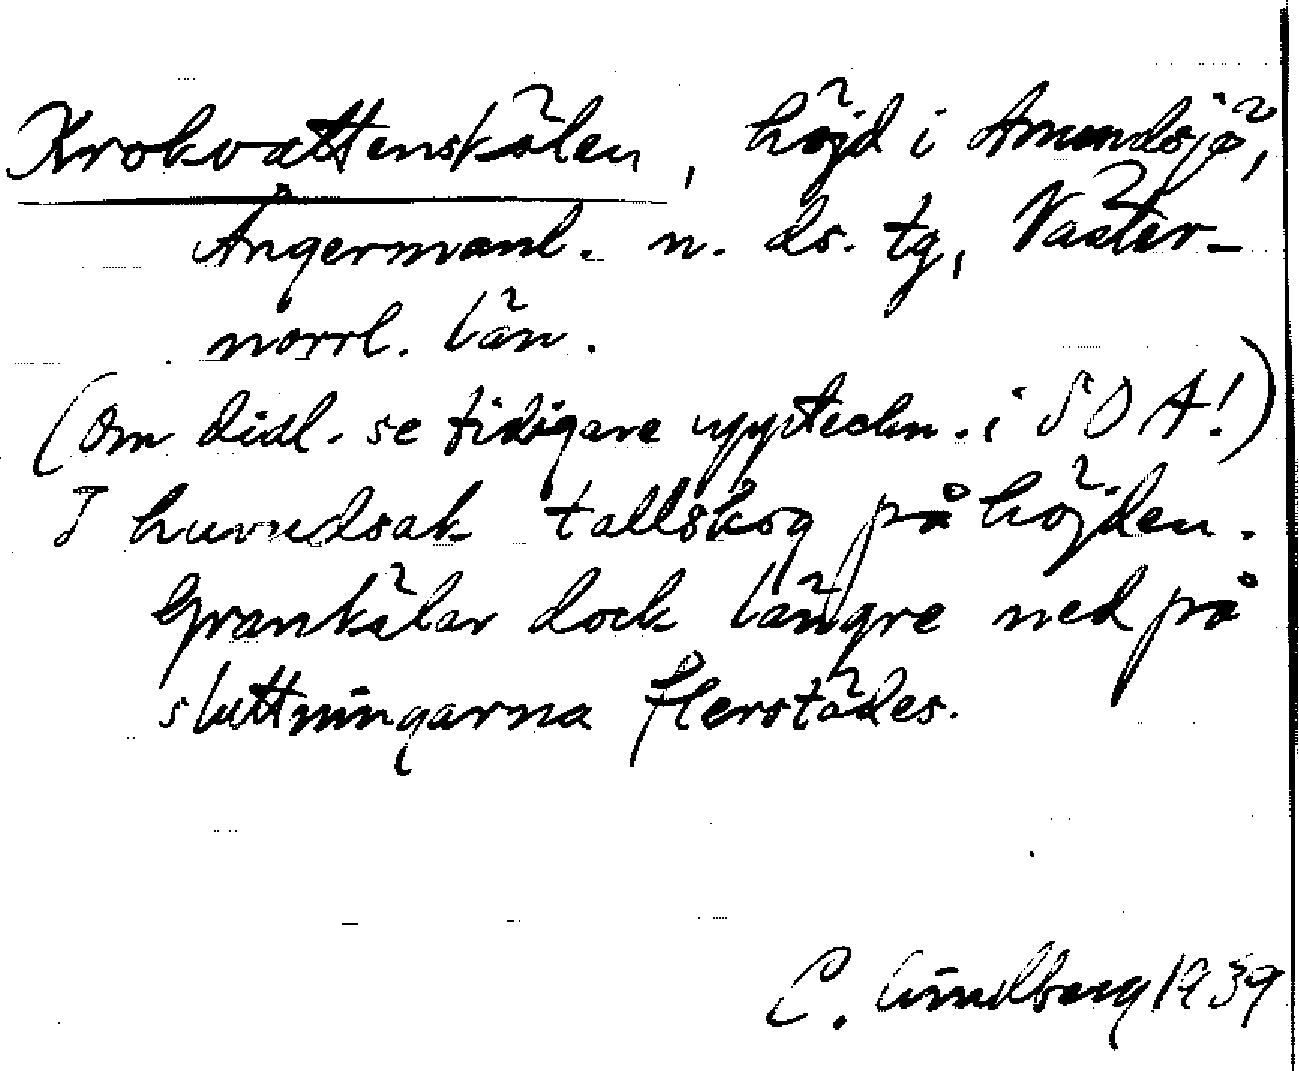 Krokvattenskälen, höjd i Anundsjö,
Ångermanl. n. ds. tg, Väster-
norrl. län.
(Om dial. se tidigare uppteckn. i SOA!)
I huvudsak tallskog på höjden.
Grankälar dock längre ned på
sluttningarna flerstädes.
C. Lindberg 1939